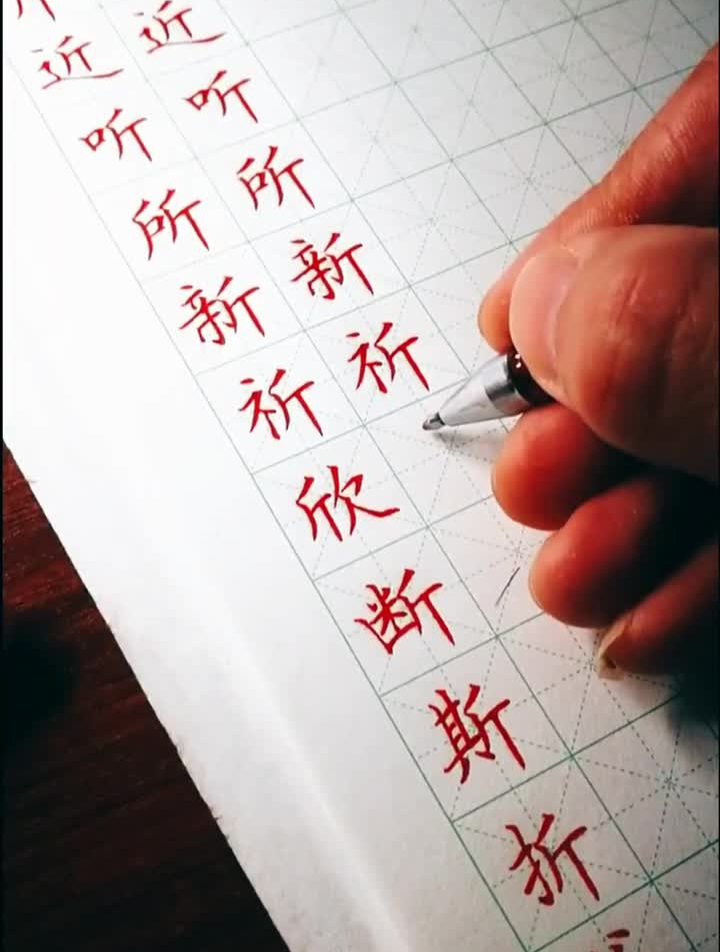 近 近
听 听
所 所
新 新
祈 祈
欣
断
斯
折